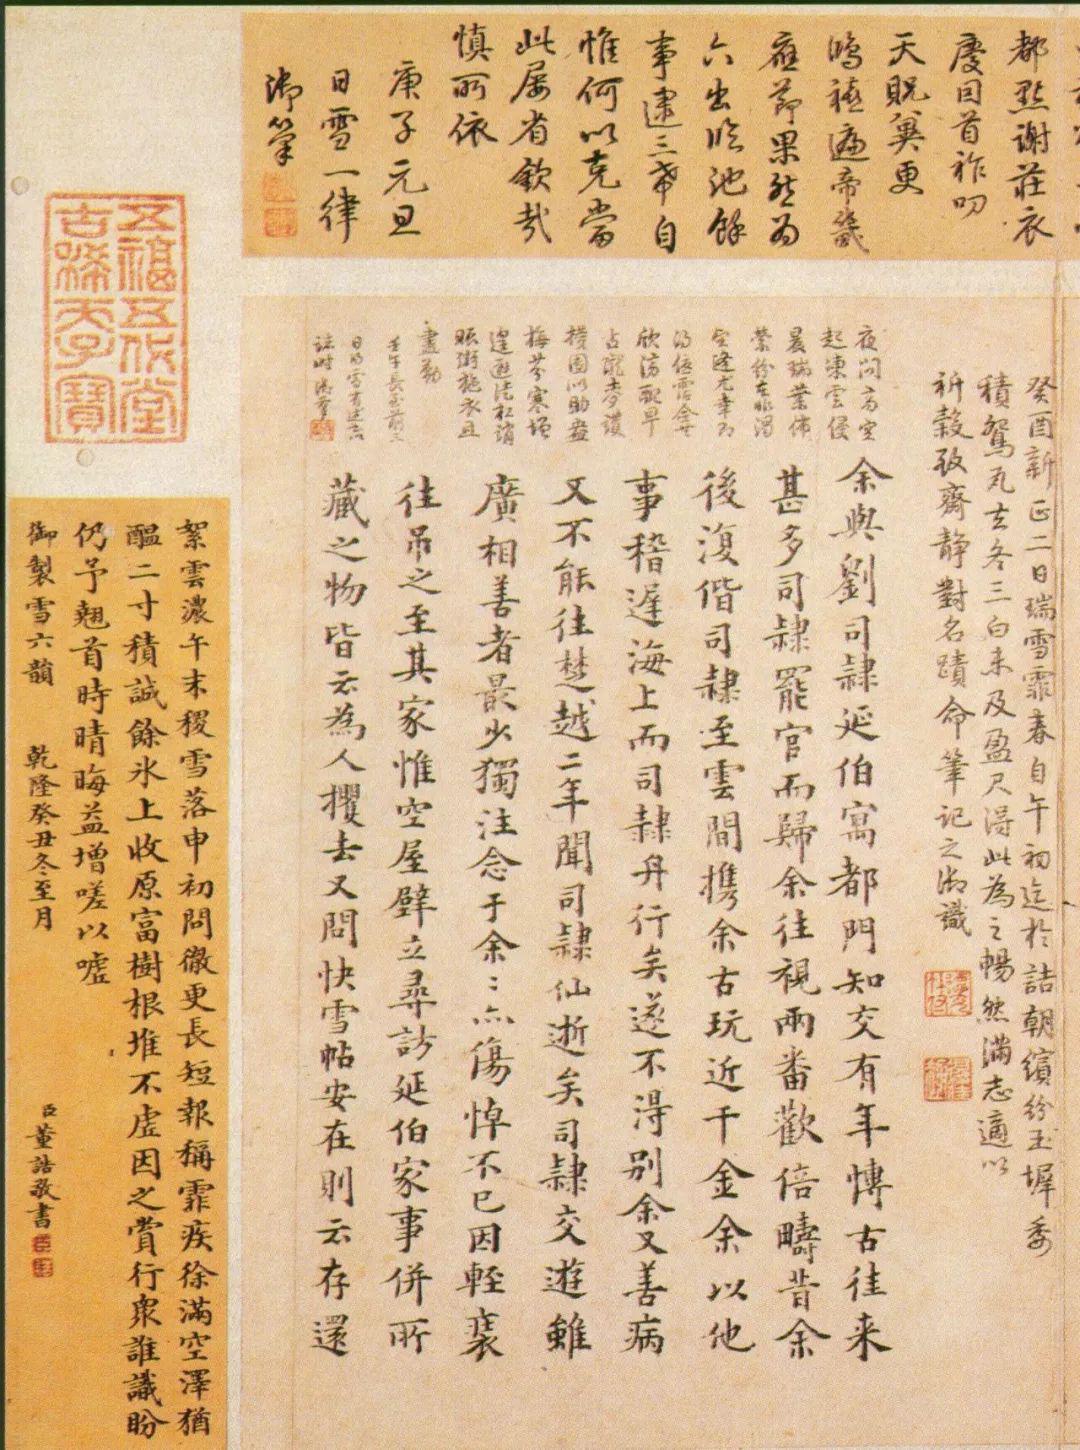 都點謝莊衣
慶因首祚叨
天貺冀更
鴻禧遍帝畿
應節果然為
六出臨池餘
事逮三希自
惟何以克當
此屢省欽哉
慎所依
庚子元旦
日雪一律
御筆
癸酉新正二日瑞雪霏春自午初迄於詰朝繽紛玉墀委
積鴛瓦去冬三白未及盈尺得此為之暢然滿志適以
祈穀致齋静對名蹟命筆記之御識
起凍雲侵
晨瑞葉佈
梅芬寒增
余與劉司隸延伯寓都門知交有年博古往来
甚多司隸罷官而歸余往視兩番歡倍疇昔余
後復偕司隸至雲間攜余古玩近千金余以他
事稽遲海上而司隸舟行矣遂不得别余又善病
又不能往楚越二年聞司隸仙逝矣司隸交遊雖
廣相善者最少獨注念于余〻亦傷悼不已因輕裘
往吊之至其家惟空屋壁立尋訪延伯家事併所
藏之物皆云為人攫去又問快雪帖安在則云存還
五福五代堂
古稀天子寶
絮雲濃午末稷雪落申初問徹更長短報稱霏疾徐滿空澤猶
醞二寸積誠餘氷上收原富樹根堆不虚因之賞行衆誰識盼
仍予翹首時晴晦益增嗟以噓
御製雪六韻 乾隆癸丑冬至月
臣董誥敬書